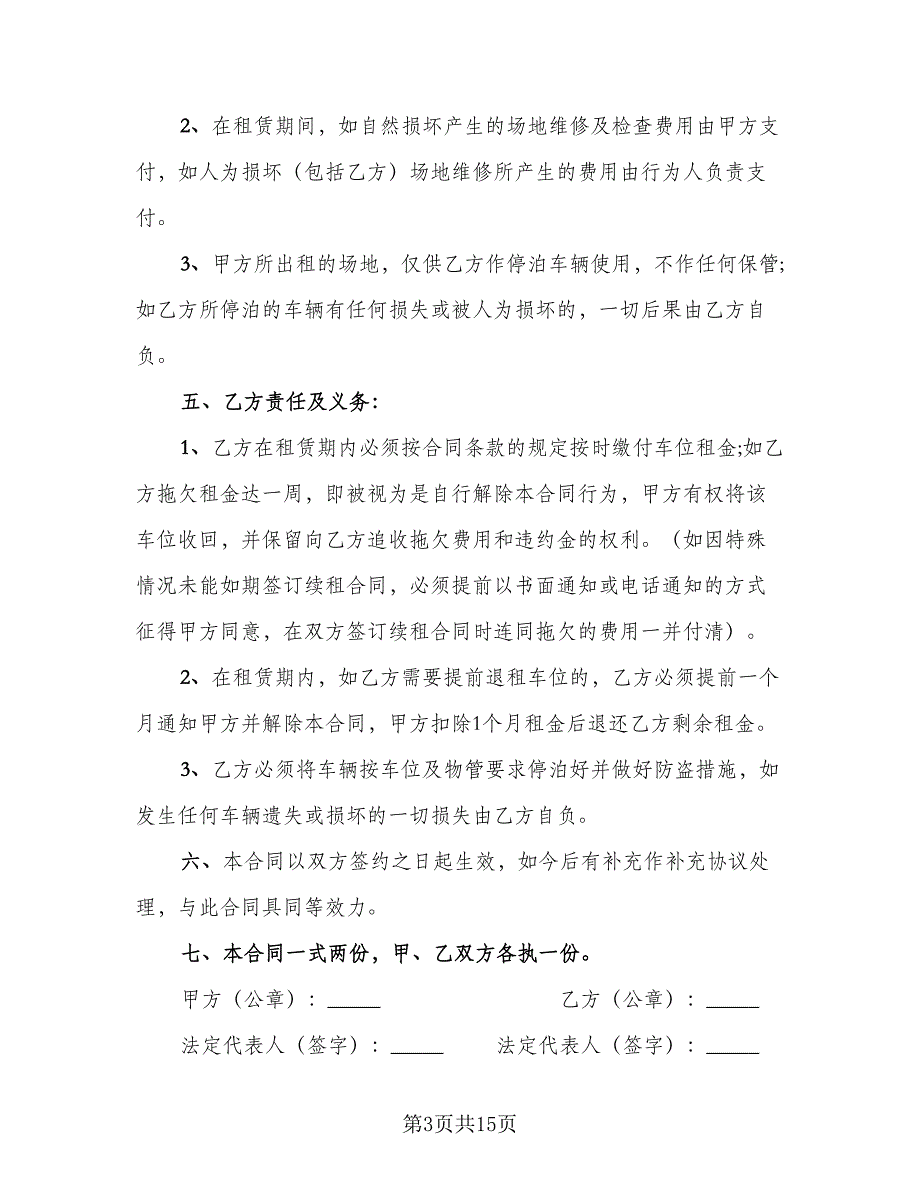 2、在租赁期间，如自然损坏产生的场地维修及检查费用由甲方支
付，如人为损坏（包括乙方）场地维修所产生的费用由行为人负责支
付。
3、甲方所出租的场地，仅供乙方作停泊车辆使用，不作任何保管;
如乙方所停泊的车辆有任何损失或被人为损坏的，一切后果由乙方自
负。
五、乙方责任及义务：
1、乙方在租赁期内必须按合同条款的规定按时缴付车位租金;如乙
方拖欠租金达一周，即被视为是自行解除本合同行为，甲方有权将该
车位收回，并保留向乙方追收拖欠费用和违约金的权利。（如因特殊
情况未能如期签订续租合同，必须提前以书面通知或电话通知的方式
征得甲方同意，在双方签订续租合同时连同拖欠的费用一并付清）。
2、在租赁期内，如乙方需要提前退租车位的，乙方必须提前一个
月通知甲方并解除本合同，甲方扣除1个月租金后退还乙方剩余租金。
3、乙方必须将车辆按车位及物管要求停泊好并做好防盗措施，如
发生任何车辆遗失或损坏的一切损失由乙方自负。
六、本合同以双方签约之日起生效，如今后有补充作补充协议处
理，与此合同具同等效力。
七、本合同一式两份，甲、乙双方各执一份。
甲方（公章）：_____ 乙方（公章）：_____
法定代表人（签字）：_____ 法定代表人（签字）：_____
第3页共15页